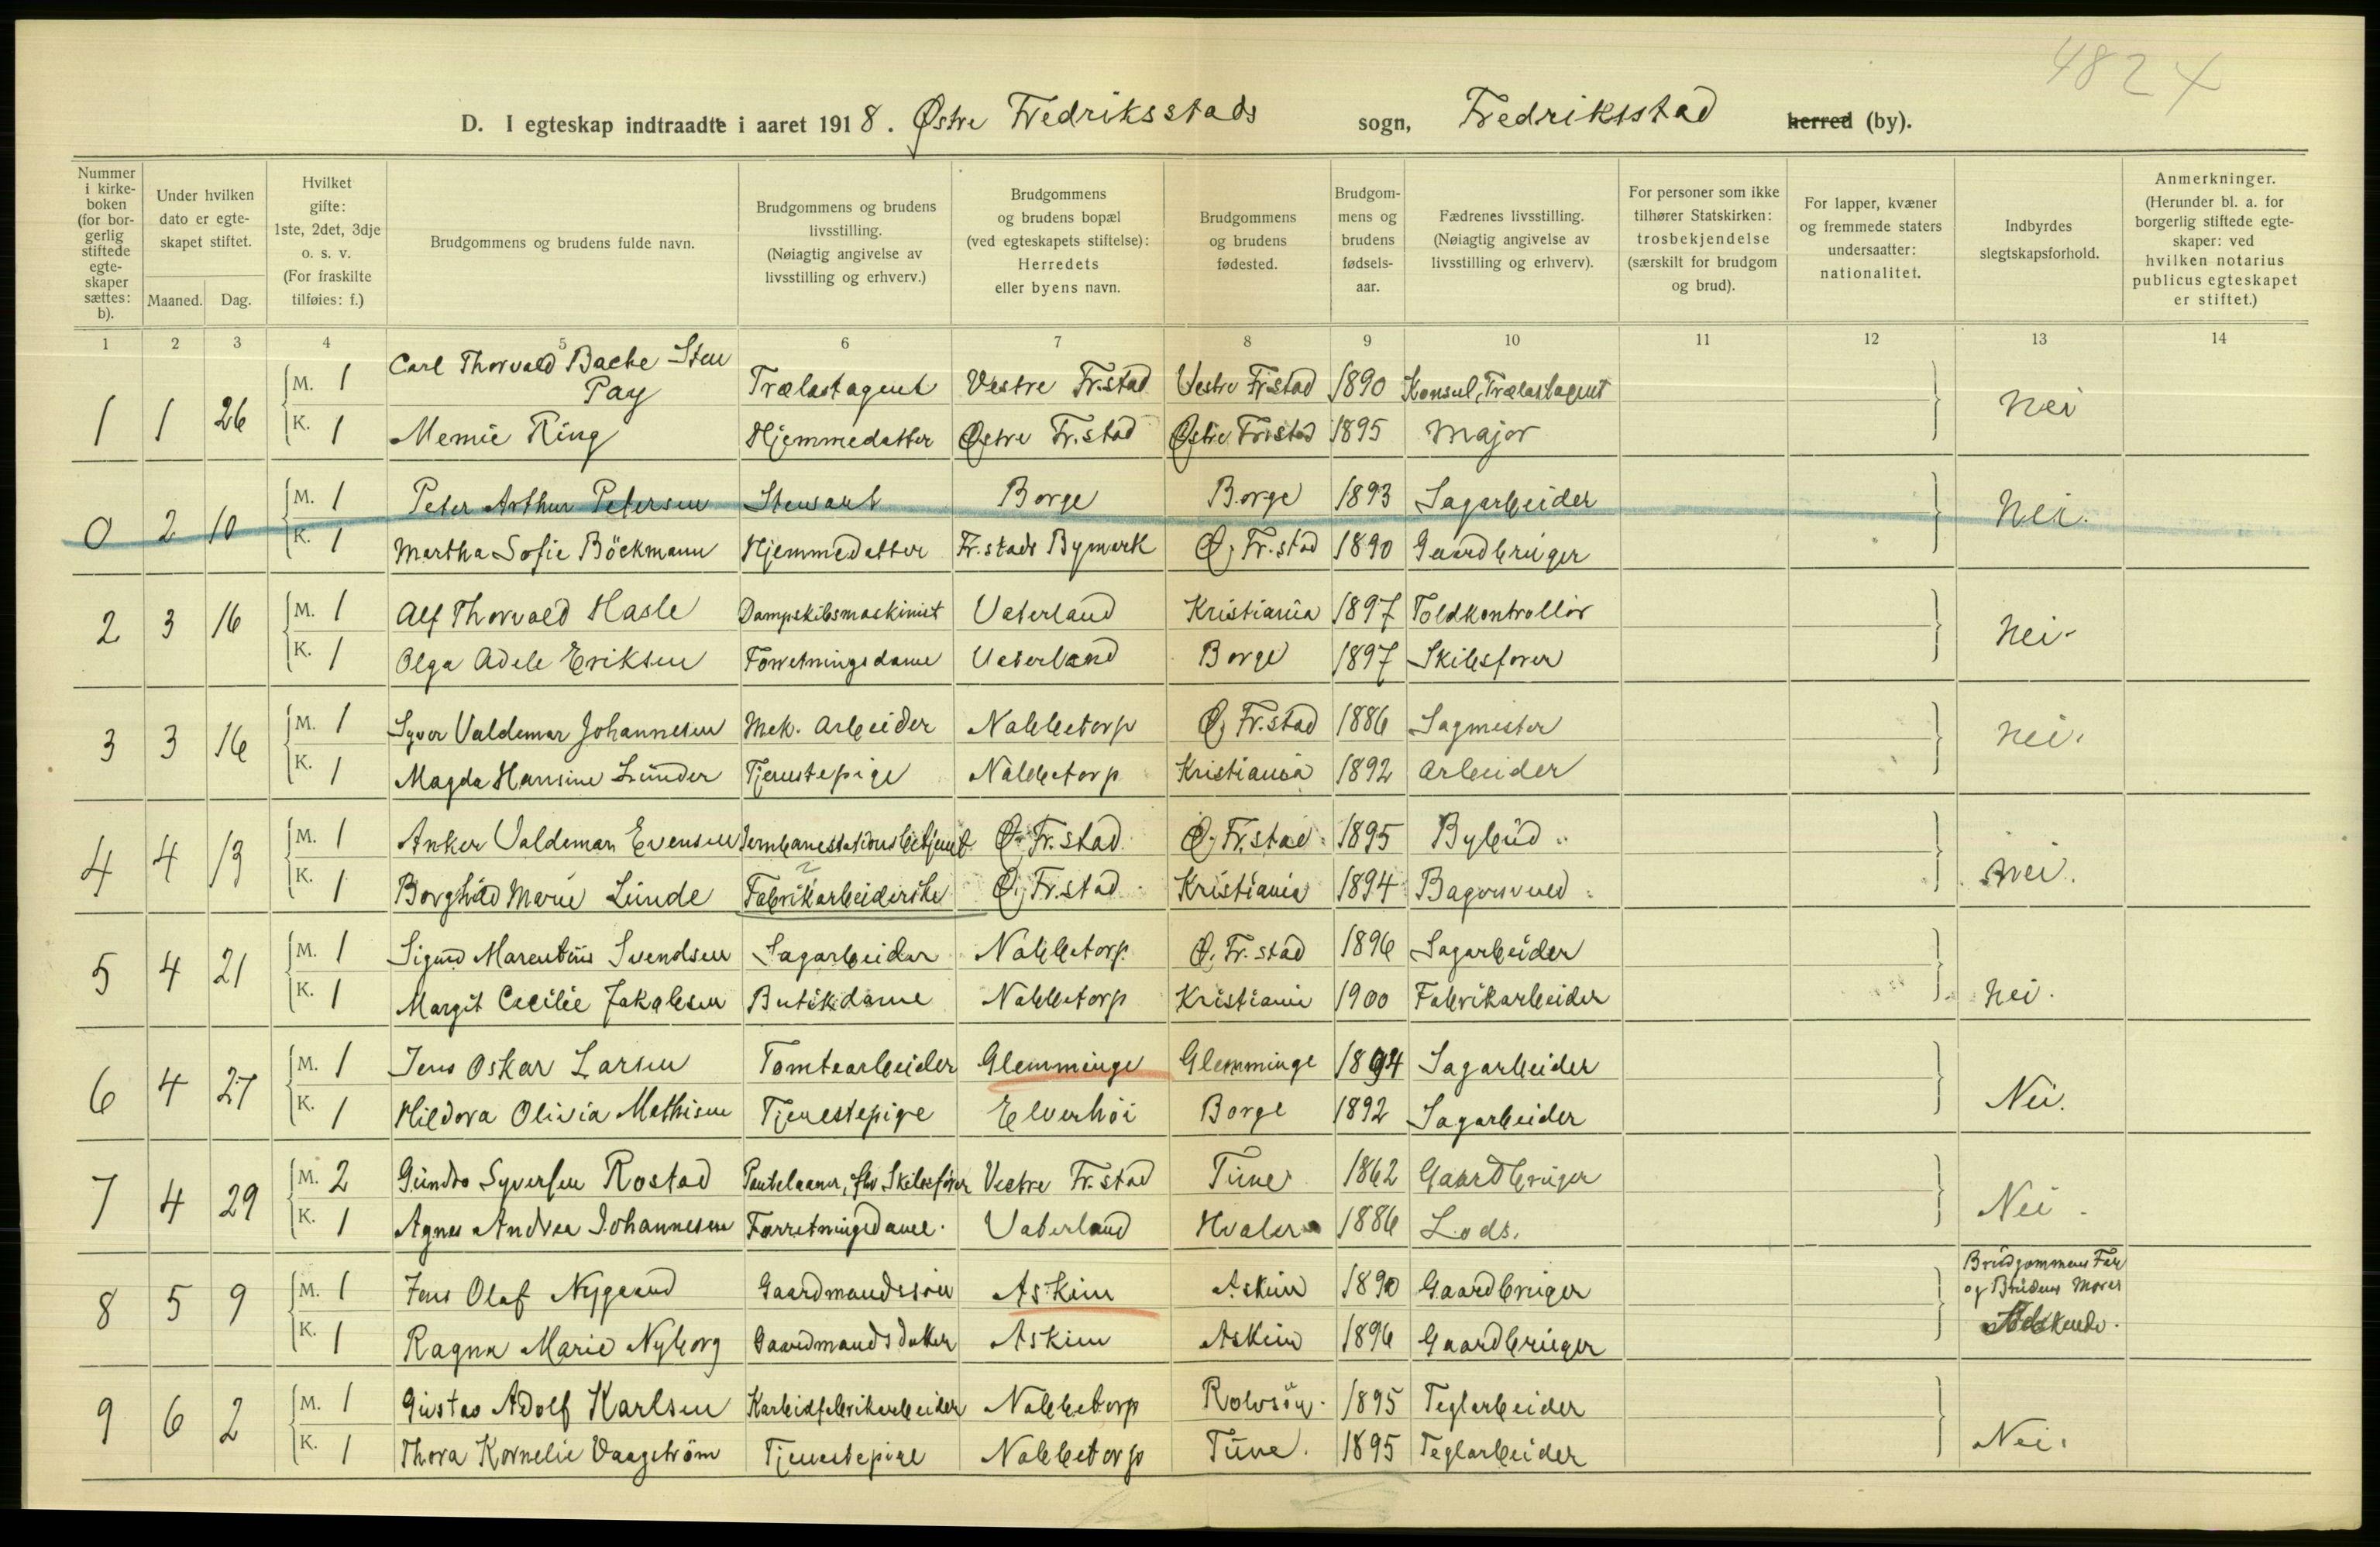 4824
D. I egteskap indtraadte i aaret 1918. Østre Fredriksstads sogn, Fredriksstad herred (by).
Nummer i kirkeboken (for borgerlig stiftede egteskaper sættes: b).
Under hvilken dato er egteskapet stiftet.
Maaned. Dag.
Hvilket gifte: 1ste, 2det, 3dje o. s. v. (For fraskilte tilføies: f.)
Brudgommens og brudens fulde navn.
Brudgommens og brudens livsstilling. (Nøiagtig angivelse av livsstilling og erhverv.)
Brudgommens og brudens bopæl (ved egteskapets stiftelse): Herredets eller byens navn.
Brudgommens og brudens fødested.
Brudgommens og brudens fødselsaar.
Fædrenes livsstilling. (Nøiagtig angivelse av livsstilling og erhverv).
For personer som ikke tilhører Statskirken: trosbekjendelse (særskilt for brudgom og brud).
For lapper, kvæner og fremmede staters undersaatter: nationalitet.
Indbyrdes slegtskapsforhold.
Anmerkninger. (Herunder bl. a. for borgerlig stiftede egteskaper: ved hvilken notarius publicus egteskapet er stiftet.)
1 2 3 4 5 6 7 8 9 10 11 12 13 14
1 1 26 M. 1 Carl Thorvald Backe Sten Pay Trælastagent Vestre Fr.stad Vestre Fr.stad 1890 Konsul, Trælastagent Nei
K. 1 Memie Ring Hjemmedatter Østre Fr.stad Østre Fr.stad 1895 Major
0 2 10 M. 1 Peter Arthur Petersen Stewart Borge Borge 1893 Sagarbeider Nei.
K. 1 Martha Sofie Böckmann Hjemmedatter Fr.stads Bymark Ø, Fr.stad 1890 Gaardbruger
2 3 16 M. 1 Alf Thorvald Hasle Dampskibsmaskinist Vaterland Kristiania 1897 Toldkontrollør Nei.
K. 1 Olga Adele Eriksen Forretningsdame Vaterland Borge 1897 Skibsfører
3 3 16 M. 1 Syver Valdemar Johannesen Mek. Arbeider Nabbetorp Ø, Fr.stad 1886 Sagmester Nei.
K. 1 Magda Hansine Lunder Tjenestepige Nabbetorp Kristiania 1892 Arbeider
4 4 13 M. 1 Anker Valdemar Evensen Jernbanestationsbetjent Ø. Fr.stad. Ø, Fr.stad. 1895 Bybud. Nei.
K. 1 Borghild Marie Lunde Fabrikarbeiderske Ø, Fr.stad. Kristiania 1894 Bagersvend.
5 4 21 M. 1 Sigurd Marentius Svendsen Sagarbeider Nabbetorp. Ø, Fr.stad 1896 Sagarbeider Nei.
K. 1 Margit Cecilie Jakobsen Butikdame Nabbetorp Kristiania 1900 Fabrikarbeider
6 4 27 M. 1 Jens Oskar Larsen Tomtearbeider Glemminge Glemminge 1894 Sagarbeider Nei.
K. 1 Hildora Olivia Mathisen Tjenestepige Elverhöi Borge 1892 Sagarbeider
7 4 29 M. 2 Gundro Syversen Rostad Pantelaaner, fhv Skibsfører Vestre Fr.stad Tune 1862 Gaardbruger Nei.
K. 1 Agnes Andrea Johannesen Forretningsdame. Vaterland Hvaler 1886 Lods.
8 5 9 M. 1 Jens Olaf Nygaard Gaardmandssøn Askim Askim 1890 Gaardbruger Brudgommens Far og Brudens Mor er Søskende.
K. 1 Ragna Marie Nyborg Gaardmandsdatter Askim Askim 1896 Gaardbruger
9 6 2 M. 1 Gustav Adolf Karlsen Karbidfabrikarbeider Nabbetorp Rolvsöy. 1895 Teglarbeider Nei.
K. 1 Thora Kornelie Vaagström Tjenestepige Nabbetorp Tune. 1895 Teglarbeider